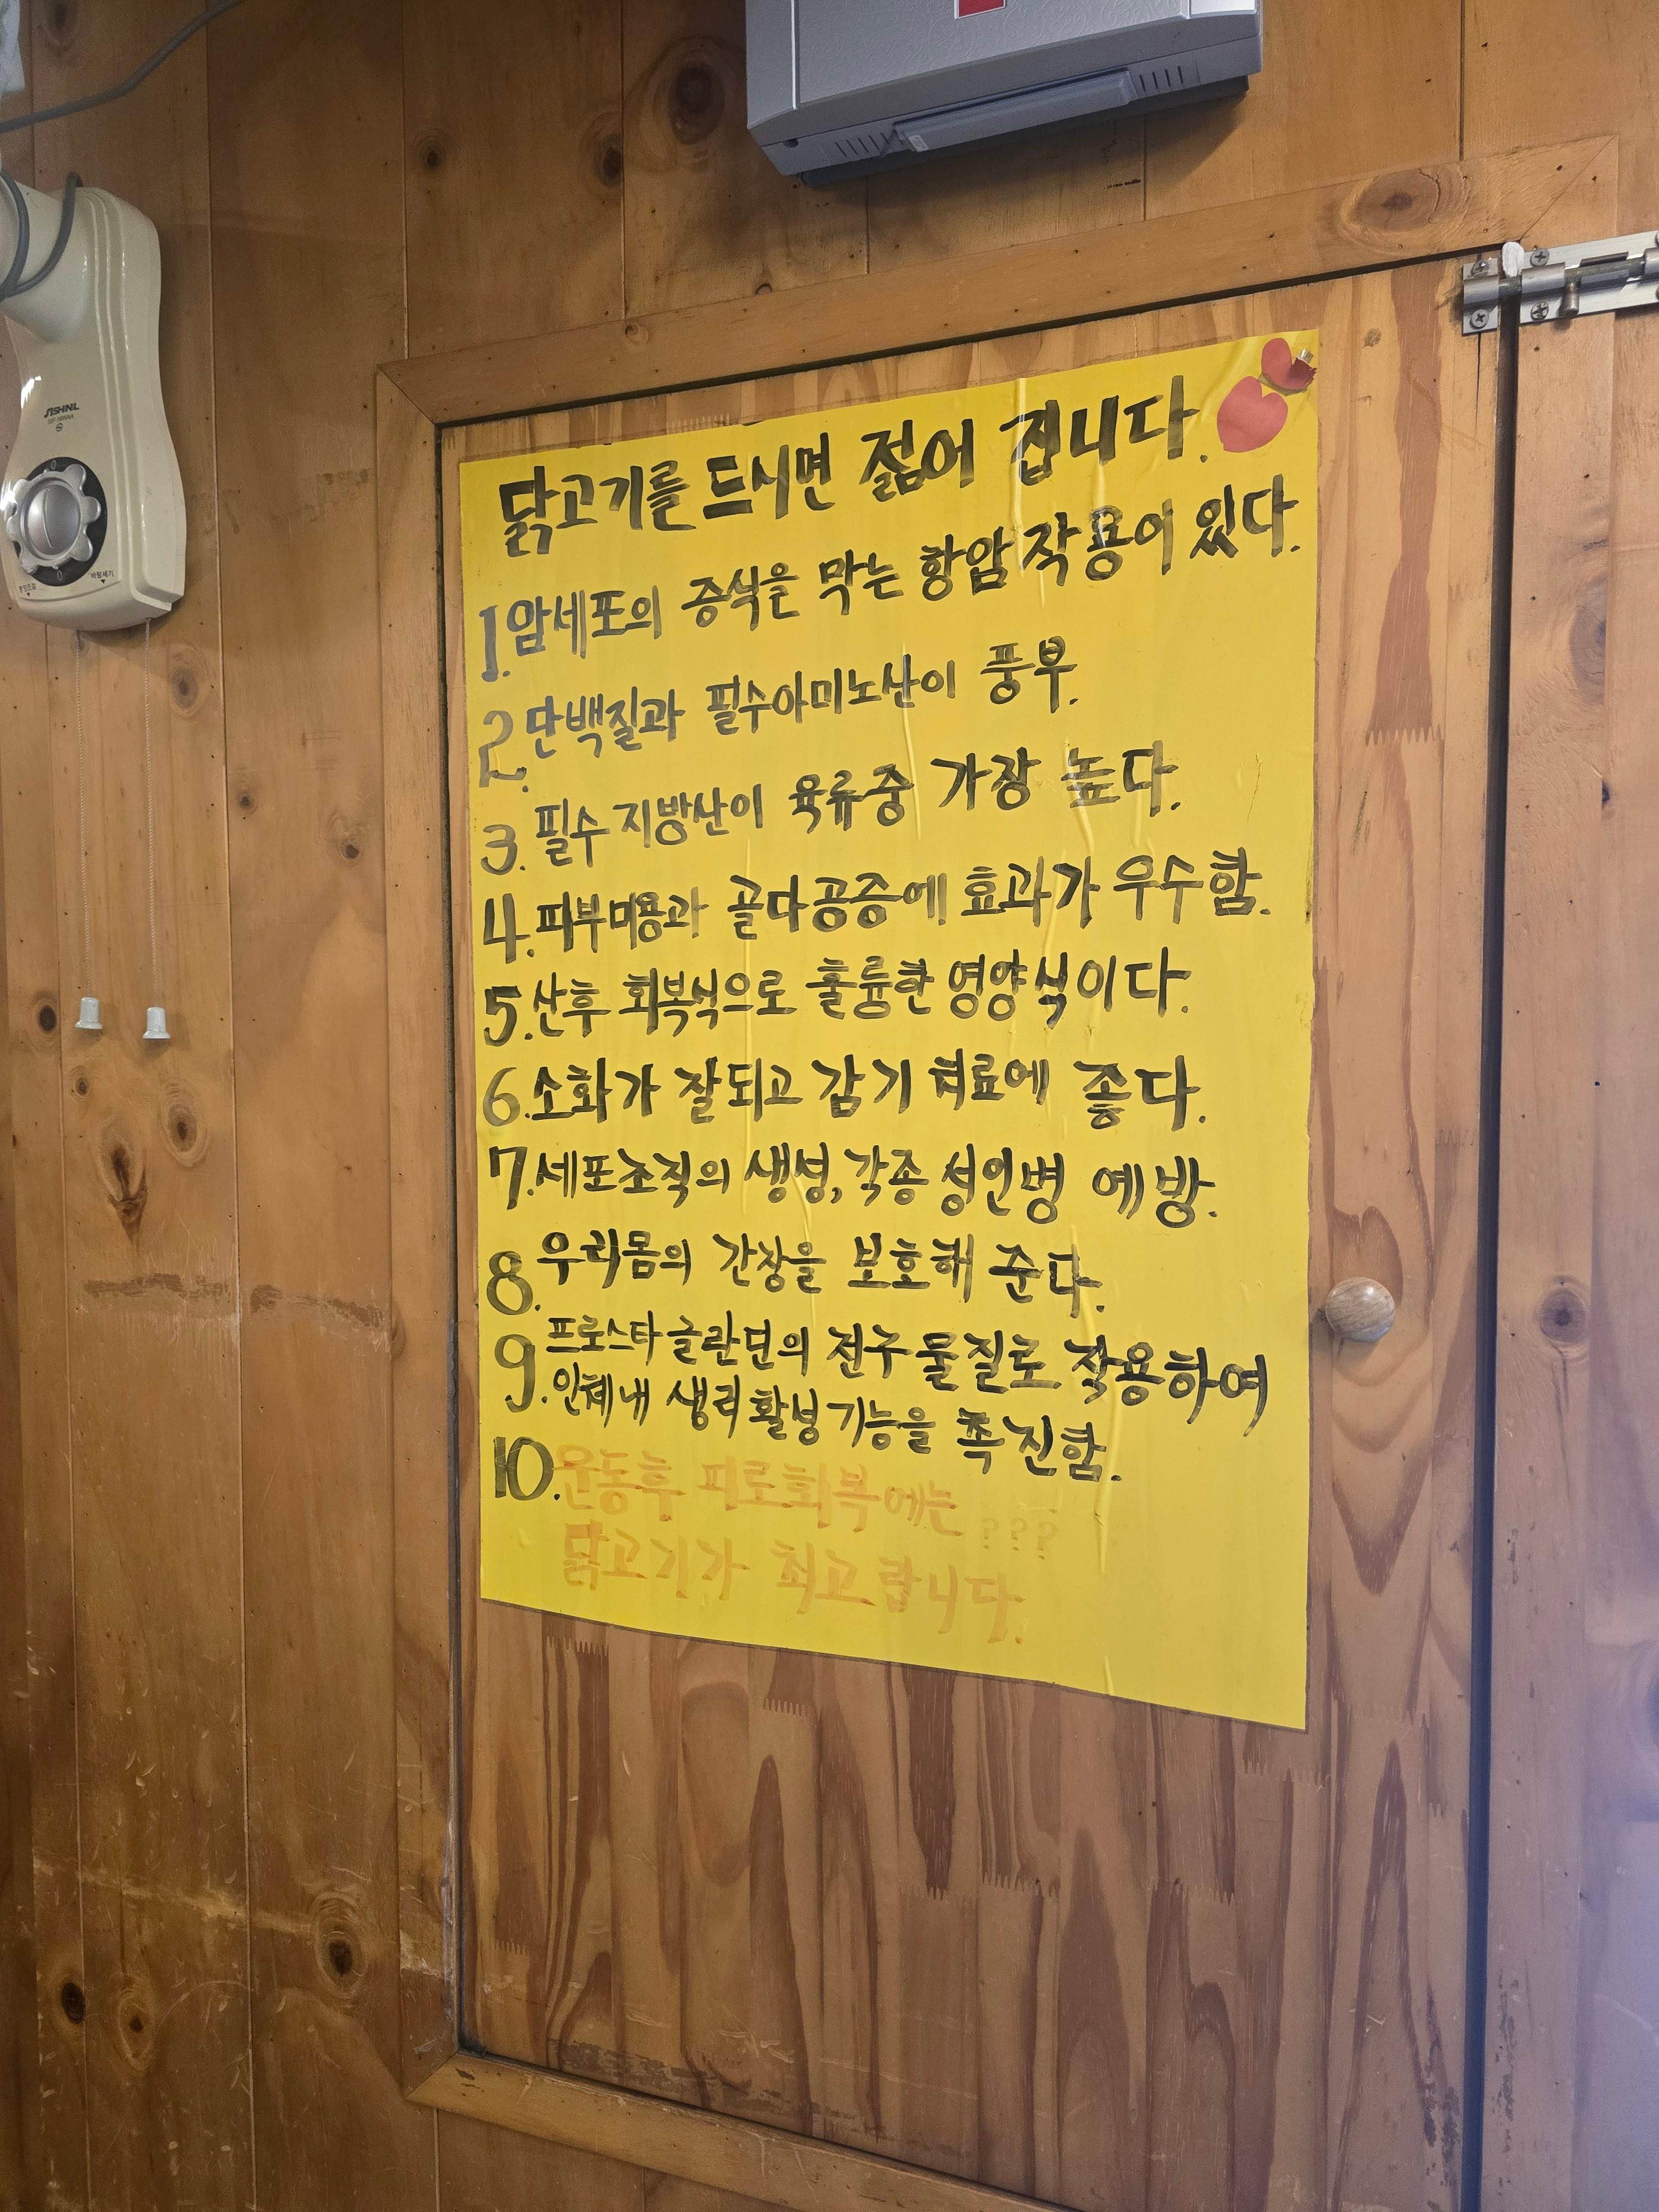 닭고기를 드시면 젊어 집니다.
1. 암세포의 증식을 막는 항암작용이 있다.
2. 단백질과 필수아미노산이 풍부.
3. 필수지방산이 육류중 가장 높다.
4. 피부미용과 골다공증에 효과가 우수함.
5. 산후 회복식으로 훌륭한 영양식이다.
6. 소화가 잘되고 감기 치료에 좋다.
7. 세포조직의 생성, 각종 성인병 예방.
8. 우리몸의 간장을 보호해 준다.
9. 프로스타글란딘의 전구물질로 작용하여
인체내 생리활성기능을 촉진함.
10. 운동후 피로회복에는 ???
닭고기가 최고랍니다.
SHINIL
바람세기